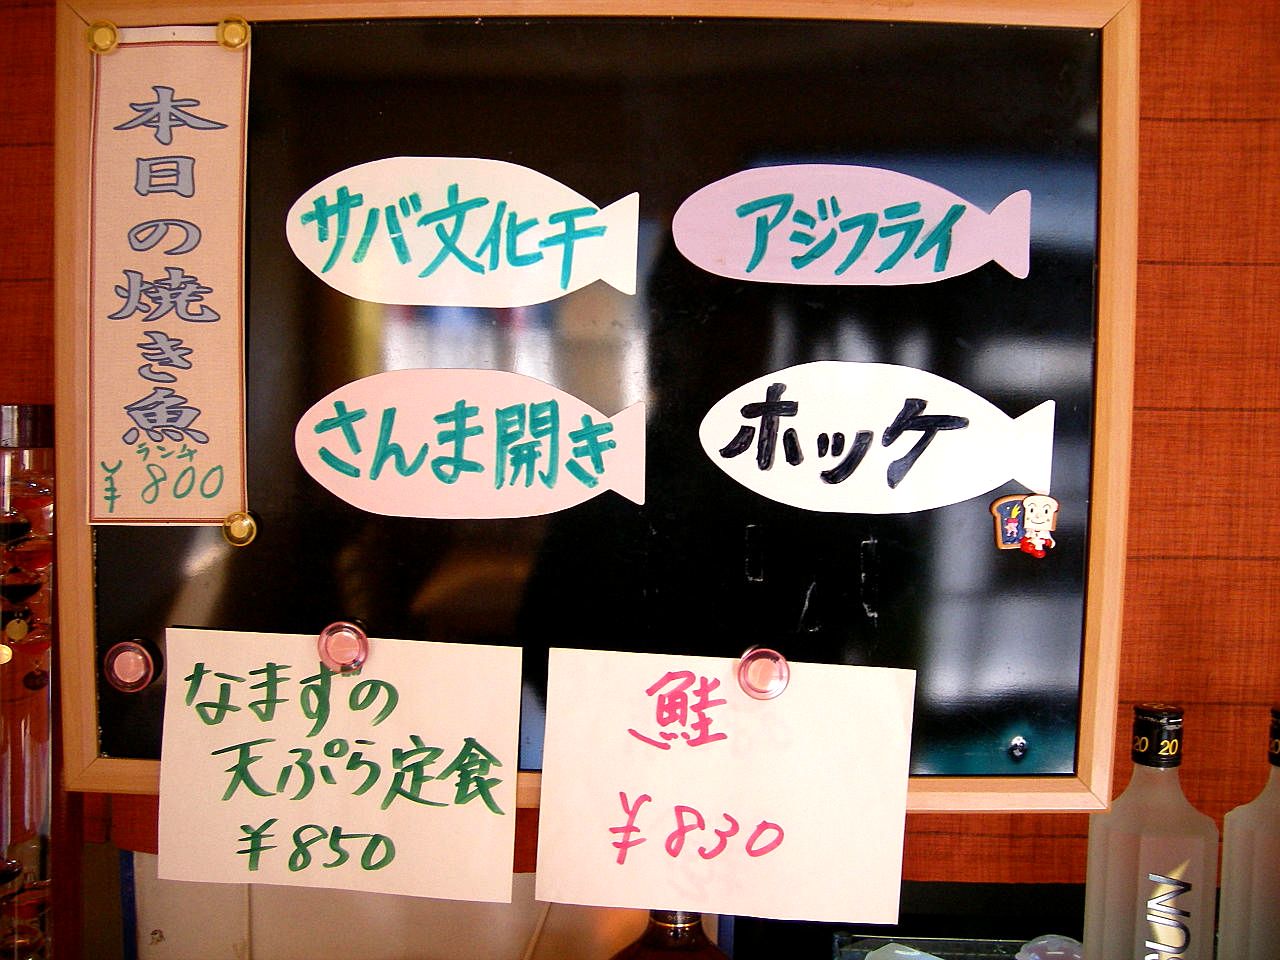 本日の焼き魚
ランチ
¥800
サバ文化干
アジフライ
さんま開き
ホッケ
なまずの
天ぷら定食
¥850
鮭
¥830
20 20